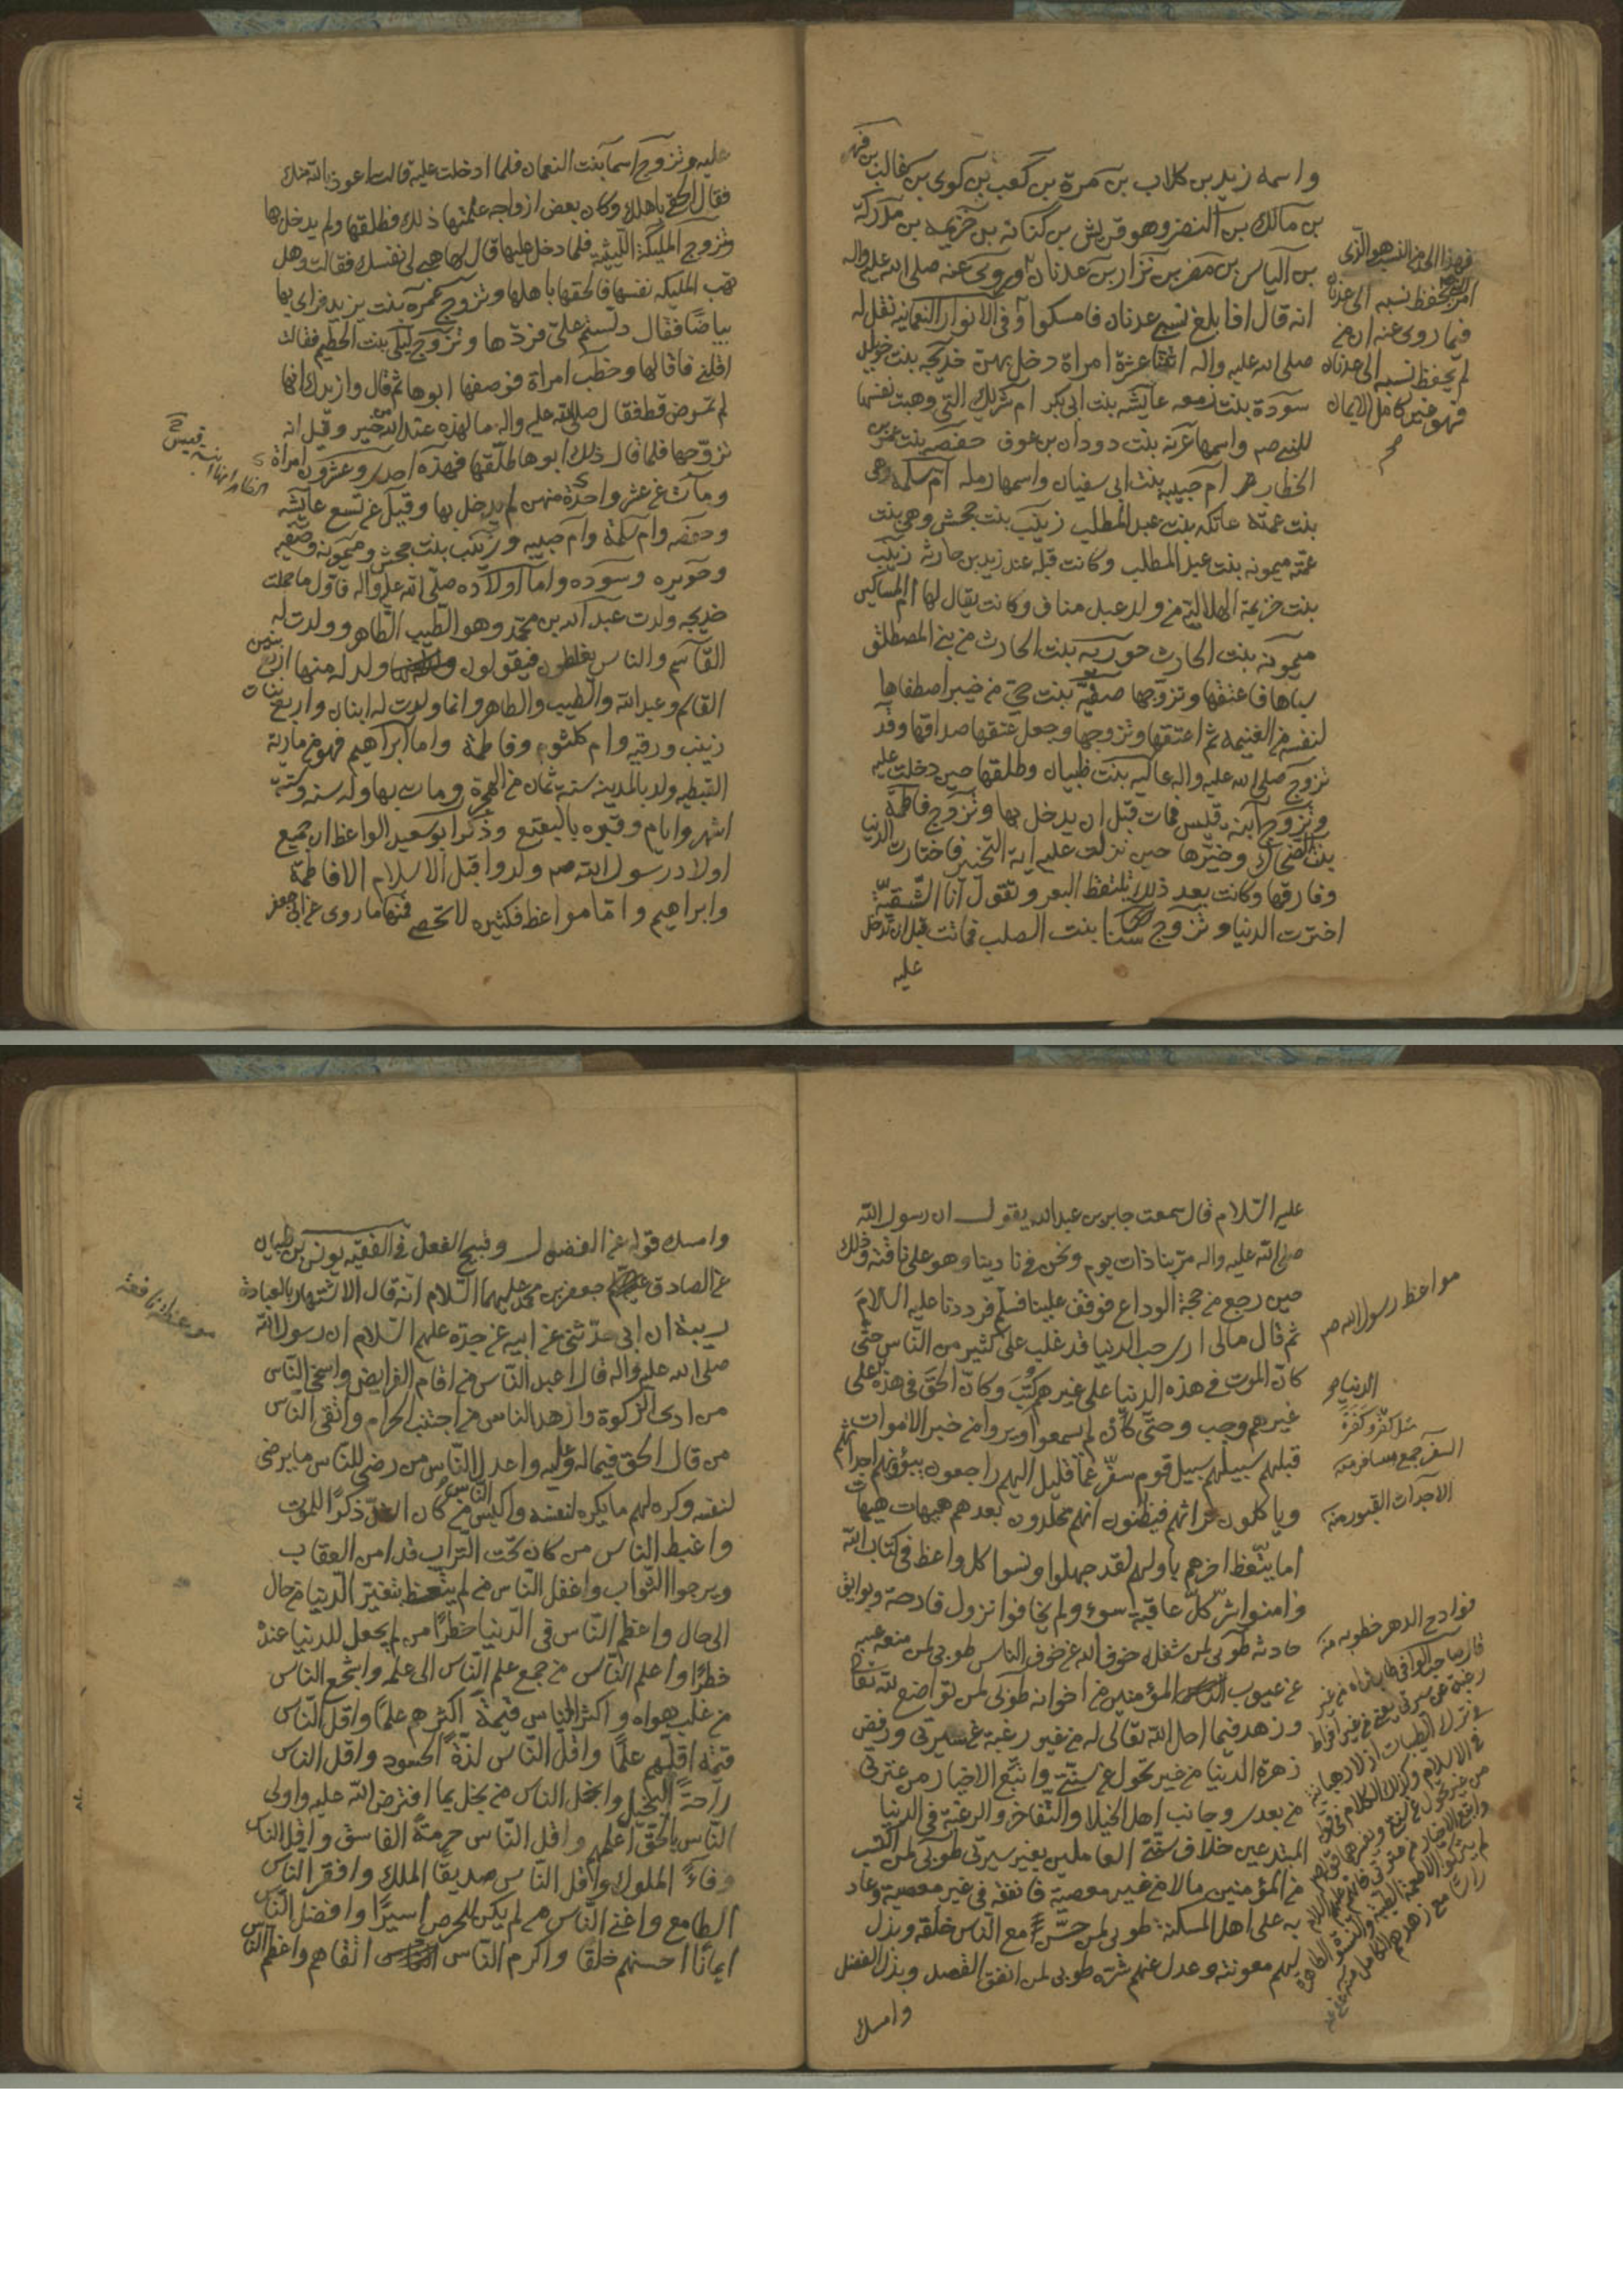 واسمه زيد بن كلاب بن مرة بن كعب بن لوى بن غالب بن فهر
بن مالك بن النضر وهو قريش بن كنانه بن خزيمه بن مدركة
بن الياس بن مضر بن نزار بن عدنان وروى عنه صلى الله عليه واله
انه قال اذا بلغ نسبي عدنان فامسكوا وفى الانوار النعمانيه نقل له
صلى الله عليه واله اثنتا عشرة امراة دخل بهن خديجه بنت خويلد
سودة بنت زمعه عايشه بنت ابى بكر ام شريك التى وهبت نفسها
للنبي صم واسمها غزيه بنت دودان بن عوف حفصه بنت عمر بن
الخطاب ام حبيبه بنت ابى سفيان واسمها رمله ام سلمه وهى
بنت عمته عاتكه بنت عبد المطلب زينب بنت جحش وهى بنت
عمته ميمونه بنت عبد المطلب وكانت قبله عند زيد بن حارثه زينب
بنت خزيمة الهلالية من ولد عبد مناف وكانت يقال لها ام المساكين
ميمونه بنت الحارث جويريه بنت الحارث من بنى المصطلق
سباها فاعتقها وتزوجها صفيه بنت حيى من خيبر اصطفاها
لنفسه من الغنيمه ثم اعتقها وتزوجها وجعل عتقها صداقها وقد
تزوج صلى الله عليه واله عاليه بنت ظبيان وطلقها حين دخلت عليه
وتزوج ابنه قيس فمات قبل ان يدخل بها وتزوج فاطمة
بنت الضحاك وخيرها حين نزلت عليه اية التخيير فاختارت الدنيا
وفارقها وكانت بعد ذلك تلتقط البعر وتقول انا الشقية
اخترت الدنيا وتزوج سنا بنت الصلب فماتت قبل ان تدخل
عليه
فهذا الحد من النسب هو الذى
امرنا بحفظ نسبه الى عدنان
فما روى عنه ان من
لم يحفظ نسبه الى عدنان
فهو غير كامل الايمان
عليه وتزوج اسما بنت النعمان فلما ادخلت عليه قالت اعوذ بالله منك
فقال الحقى باهلك وكان بعض ازواجه علمتها ذلك فطلقها ولم يدخل بها
وتزوج المليكة الليثيه فلما دخل عليها قال لها هبى لى نفسك فقالت وهل
تهب المليكه نفسها فالحقها باهلها وتزوج عمره بنت يزيد فراى بها
بياضا فقال دلستم على فردها وتزوج ليلى بنت الخطيم فقالت
اقلنى فاقالها وخطب امراة فوصفها ابوها ثم قال وازيدك انها
لم تمرض قط فقال صلى الله عليه واله ما لهذه عند الله من خير وقيل انه
تزوجها فلما قال ذلك ابوها طلقها فهذه احدى وعشرون امراة
ومات عن عشر واحدة منهن لم يدخل بها وقيل عن تسع عايشه
وحفصه وام سلمة وام حبيبه وزينب بنت جحش وميمونه وصفيه
وجويره وسوده واما اولاده صلى الله عليه واله فاول ما حملت
خديجه ولدت عبد الله بن محمد وهو الطيب الطاهر وولدت له
القاسم والناس يغلطون فيقولون ولد له منها اربع بنين
القاسم وعبد الله والطيب والطاهر وانما ولدت له ابنان واربع بنات
زينب ورقيه وام كلثوم وفاطمة واما ابراهيم فهو من مارية
القبطيه ولد بالمدينه سنة ثمان من الهجرة ومات بها وله سنه وستة
اشهر وايام وقبره بالبقيع وذكر ابو سعيد الواعظ ان جميع
اولاد رسول الله صم ولدوا قبل الاسلام الا فاطمة
وابراهيم واما مواعظه فكثيره لا تحصى فمنها ما روى عن ابى جعفر
الظاهر انها ابنة قيس
عليه السلام قال سمعت جابر بن عبد الله يقول ان رسول الله
صلى الله عليه واله مر بنا ذات يوم ونحن فى نادينا وهو على ناقته وذلك
حين رجع من حجة الوداع فوقف علينا فسلم فرددنا عليه السلام
ثم قال مالى ارى حب الدنيا قد غلب على كثير من الناس حتى
كان الموت فى هذه الدنيا على غيرهم كتب وكان الحق فى هذه على
غيرهم وجب وحتى كان لم يسمعوا ويروا من خبر الاموات
قبلهم سبيلهم سبيل قوم سفر عما قليل اليهم راجعون بيوتهم اجداثهم
وياكلون تراثهم فيظنون انهم مخلدون بعدهم هيهات هيهات
اما يتعظ اخرهم باولهم لقد جهلوا ونسوا كل واعظ فى كتاب الله
وامنوا شر كل عاقبة سوء ولم يخافوا نزول فادحة وبوائق
حادثه طوبى لمن شغله خوف الله عن خوف الناس طوبى لمن منعه عيبه
عن عيوب المؤمنين من اخوانه طوبى لمن تواضع لله تعالى
وزهد فيما احل الله تعالى له من غير رغبة عن سيرتى ورفض
زهرة الدنيا من غير تحول عن سنتى واتبع الاخيار من عترتى
من بعدى وجانب اهل الخيلا والتفاخر والرغبة فى الدنيا
المبتدعين خلاف سنتى العاملين بغير سيرتى طوبى لمن اكتسب
من المؤمنين مالا من غير معصية فانفقه فى غير معصية وعاد
به على اهل المسكنة طوبى لمن حسن مع الناس خلقه وبذل
لهم معونته وعدل عنهم شره طوبى لمن انفق القصد وبذل الفضل
وامسك
مواعظ رسول الله صم
الدنيا
مثل كفر وكفرة
السفر جمع مسافر منه
الاجداث القبور منه
فوادح الدهر خطوبه منه
وامسك قوله عن الفضول وقبيح الفعل فى الفقيه يونس بن ظبيان
عن الصادق جعفر بن محمد عليهما السلام انه قال الاشتهار بالعبادة
ريبة ان ابى حدثنى عن ابيه عن جده عليهم السلام ان رسول الله
صلى الله عليه واله قال اعبد الناس من اقام الفرايض واسخى الناس
من ادى الزكوة وازهد الناس من اجتنب الحرام واتقى الناس
من قال الحق فيما له وعليه واعدل الناس من رضى للناس ما يرضى
لنفسه وكره لهم ما يكره لنفسه واكيس الناس من كان اشد ذكرا للموت
واغبط الناس من كان تحت التراب قد امن العقاب
ويرجوا الثواب واغفل الناس من لم يتعظ بتغير الدنيا من حال
الى حال واعظم الناس فى الدنيا خطرا من لم يجعل للدنيا عنده
خطرا واعلم الناس من جمع علم الناس الى علمه واشجع الناس
من غلب هواه واكثر الناس قيمة اكثرهم علما واقل الناس
قيمة اقلهم علما واقل الناس لذة الحسود واقل الناس
راحة البخيل وابخل الناس من بخل بما افترض الله عليه واولى
الناس بالحق اعلمهم واقل الناس حرمة الفاسق واقل الناس
وفاء الملوك واقل الناس صديقا الملك وافقر الناس
الطامع واغنى الناس من لم يكن للحرص اسيرا وافضل الناس
ايمانا احسنهم خلقا واكرم الناس اتقاهم واعظم الناس
موعظة نافعة